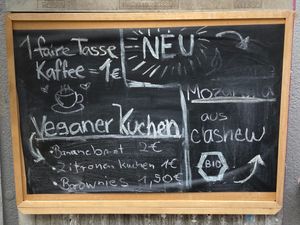 1 faire Tasse
Kaffee = 1€
NEU
Veganer Kuchen
• Bananebrot 2€
• Zitronen kuchen 1€
• Brownies 1,50€
Mozarella
aus
cashew
BIO